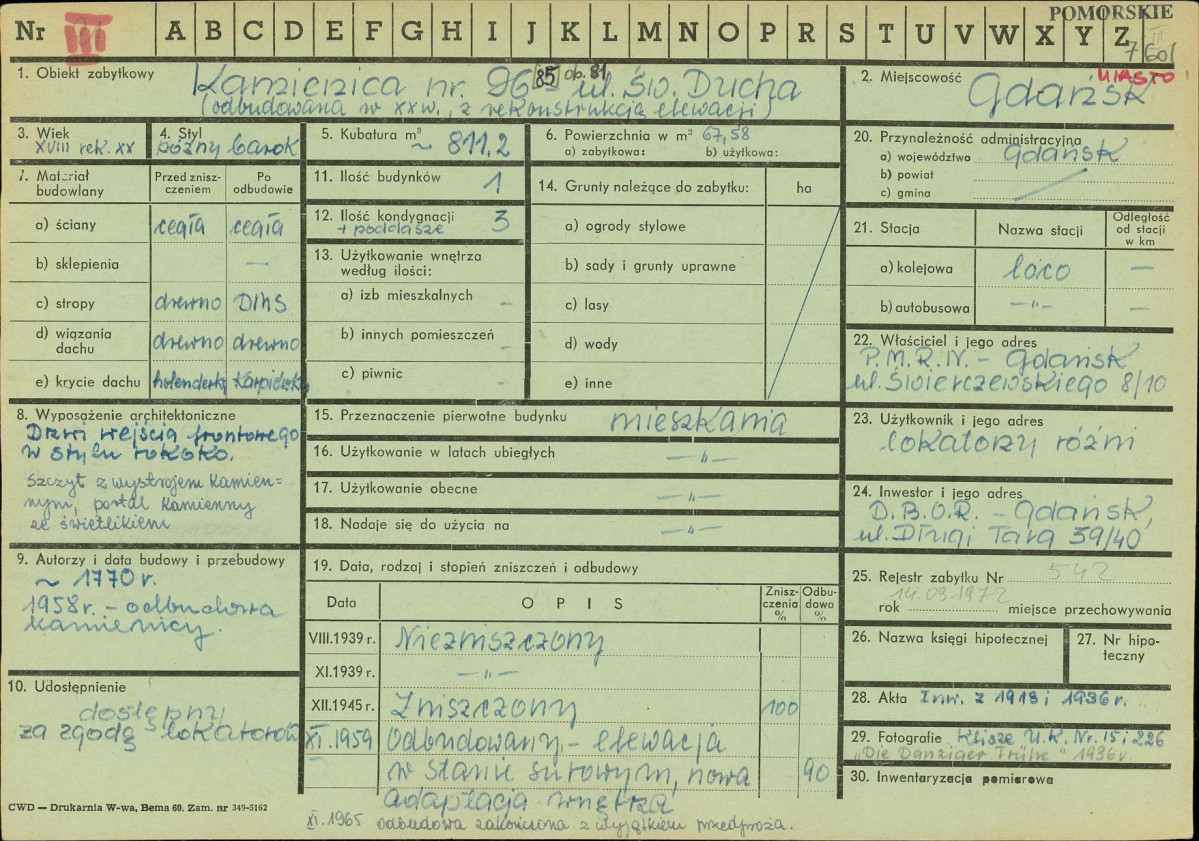 POMORSKIE
Nr III A B C D E F G H I J K L M N O P R S T U V W X Y Z
1. Obiekt zabytkowy
Kamienica nr. 96 85 ob. 81 - ul. Św. Ducha
(odbudowana w XX w., z rekonstrukcją elewacji)
2. Miejscowość
MIASTO
Gdańsk
3. Wiek
XVIII rek. XX
4. Styl
późny barok
5. Kubatura m³
~ 811,2
6. Powierzchnia w m² 67,58
a) zabytkowa: b) użytkowa:
20. Przynależność administracyjna
a) województwo Gdańsk
b) powiat
c) gmina
7. Materiał budowlany
Przed zniszczeniem
Po odbudowie
a) ściany cegła cegła
b) sklepienia —
c) stropy drewno DMS
d) wiązania dachu drewno drewno
e) krycie dachu holenderka Karpiówka
11. Ilość budynków 1
12. Ilość kondygnacji 3
+ poddasze
13. Użytkowanie wnętrza
według ilości:
a) izb mieszkalnych –
b) innych pomieszczeń –
c) piwnic –
14. Grunty należące do zabytku: ha
a) ogrody stylowe
b) sady i grunty uprawne
c) lasy
d) wody
e) inne
21. Stacja
Nazwa stacji
Odległość
od stacji
w km
a) kolejowa loco —
b) autobusowa —"— —
22. Właściciel i jego adres
P.M.R.N. - Gdańsk
ul. Świerczewskiego 8/10
8. Wyposażenie architektoniczne
Drzwi wejścia frontowego
w stylu rokoko.
Szczyt z wystrojem kamien=
nym, portal kamienny
ze świetlikiem
15. Przeznaczenie pierwotne budynku mieszkania
16. Użytkowanie w latach ubiegłych —"—
17. Użytkowanie obecne —"—
18. Nadaje się do użycia na —"—
23. Użytkownik i jego adres
lokatorzy różni
24. Inwestor i jego adres
D.B.O.R. - Gdańsk,
ul. Długi Targ 39/40
9. Autorzy i data budowy i przebudowy
~ 1770 r.
1958 r. - odbudowa
kamienicy.
19. Data, rodzaj i stopień zniszczeń i odbudowy
Data
O P I S
Zniszczenia %
Odbudowa %
VIII.1939 r. Niezniszczony
XI.1939 r. —"—
XII.1945 r. Zniszczony 100
XI.1959 Odbudowany - elewacja
w stanie surowym, nowa 90
adaptacja wnętrza
XI.1965 odbudowa zakończona z wyjątkiem przedproża.
25. Rejestr zabytku Nr 542
14.03.1972
rok miejsce przechowywania
26. Nazwa księgi hipotecznej
27. Nr hipoteczny
10. Udostępnienie
dostępny
za zgodą lokatorów
28. Akta Inw. z 1918 i 1936 r.
29. Fotografie Klisze U.K. Nr. 15 i 226
"Die Danziger Trühe" 1936 r.
30. Inwentaryzacja pomiarowa
CWD — Drukarnia W-wa, Bema 60. Zam. nr 349-5162